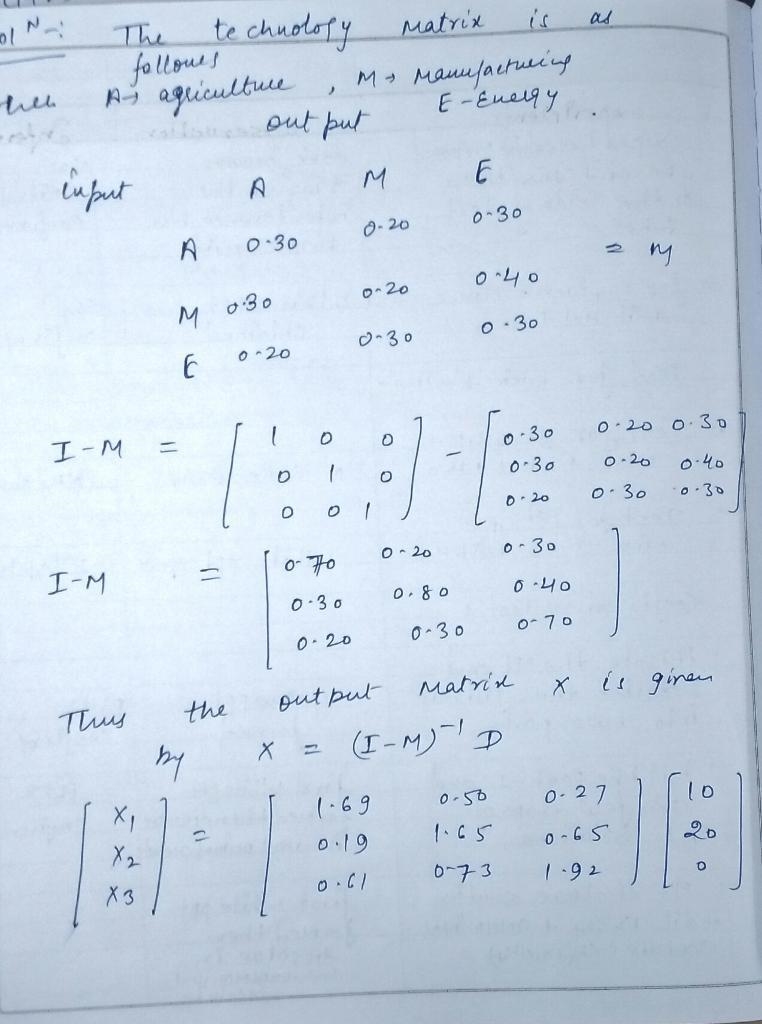 The technology matrix is as
follows
A → agriculture , M → Manufactueing
output E - Energy .
input A M E
A 0.30 0.20 0.30
= M
M 0.30 0.20 0.40
E 0.20 0.30 0.30
I - M = [ 1 0 0 ] - [ 0.30 0.20 0.30 ]
0 1 0 0.30 0.20 0.40
0 0 1 0.20 0.30 0.30
I - M = [ 0.70 0.20 0.30 ]
0.30 0.80 0.40
0.20 0.30 0.70
Thus the output Matrix X is given
by X = (I-M)⁻¹ D
[ X₁ ] = [ 1.69 0.50 0.27 ] [ 10 ]
X₂ 0.19 1.65 0.65 20
X₃ 0.61 0.73 1.92 0